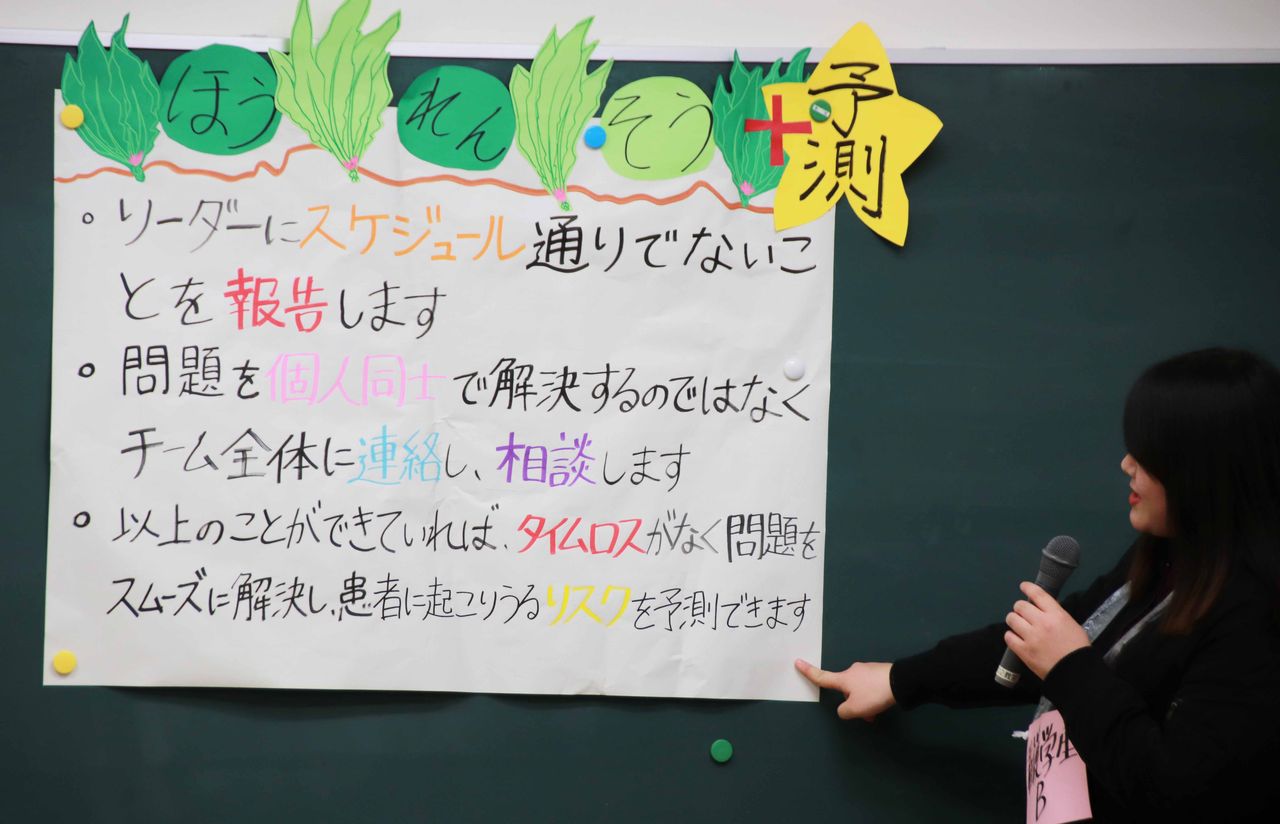 ほうれんそう+予測
。リーダーにスケジュール通りでないこ
とを報告します
。問題を個人同士で解決するのではなく
チーム全体に連絡し、相談します
。以上のことができていれば、タイムロスがなく問題を
スムーズに解決し、患者に起こりうるリスクを予測できます
学生
B